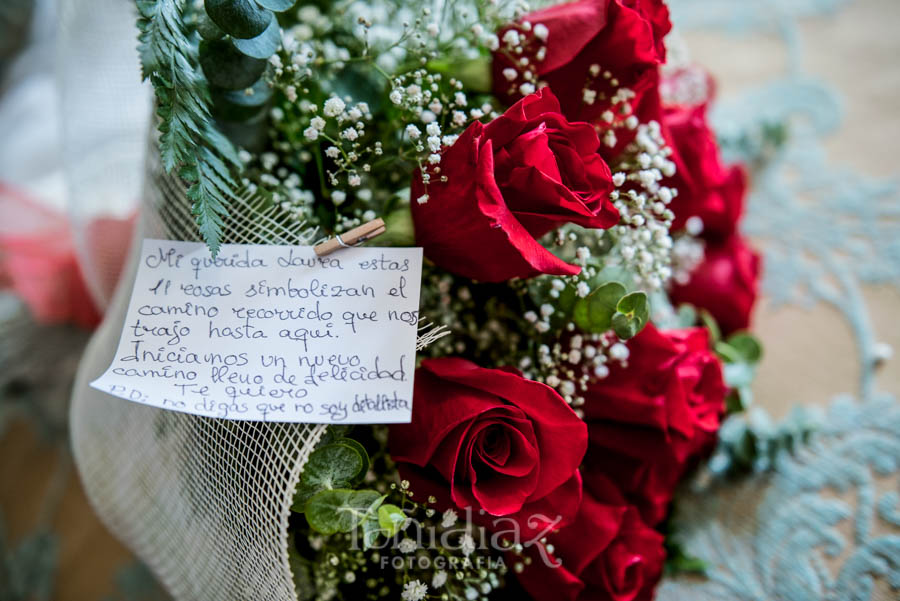 Mi querida Laura estas
11 rosas simbolizan el
camino recorrido que nos
trajo hasta aquí.
Iniciamos un nuevo
camino lleno de felicidad.
Te quiero
P.D: no digas que no soy detallista
Toñi Díaz
FOTOGRAFÍA